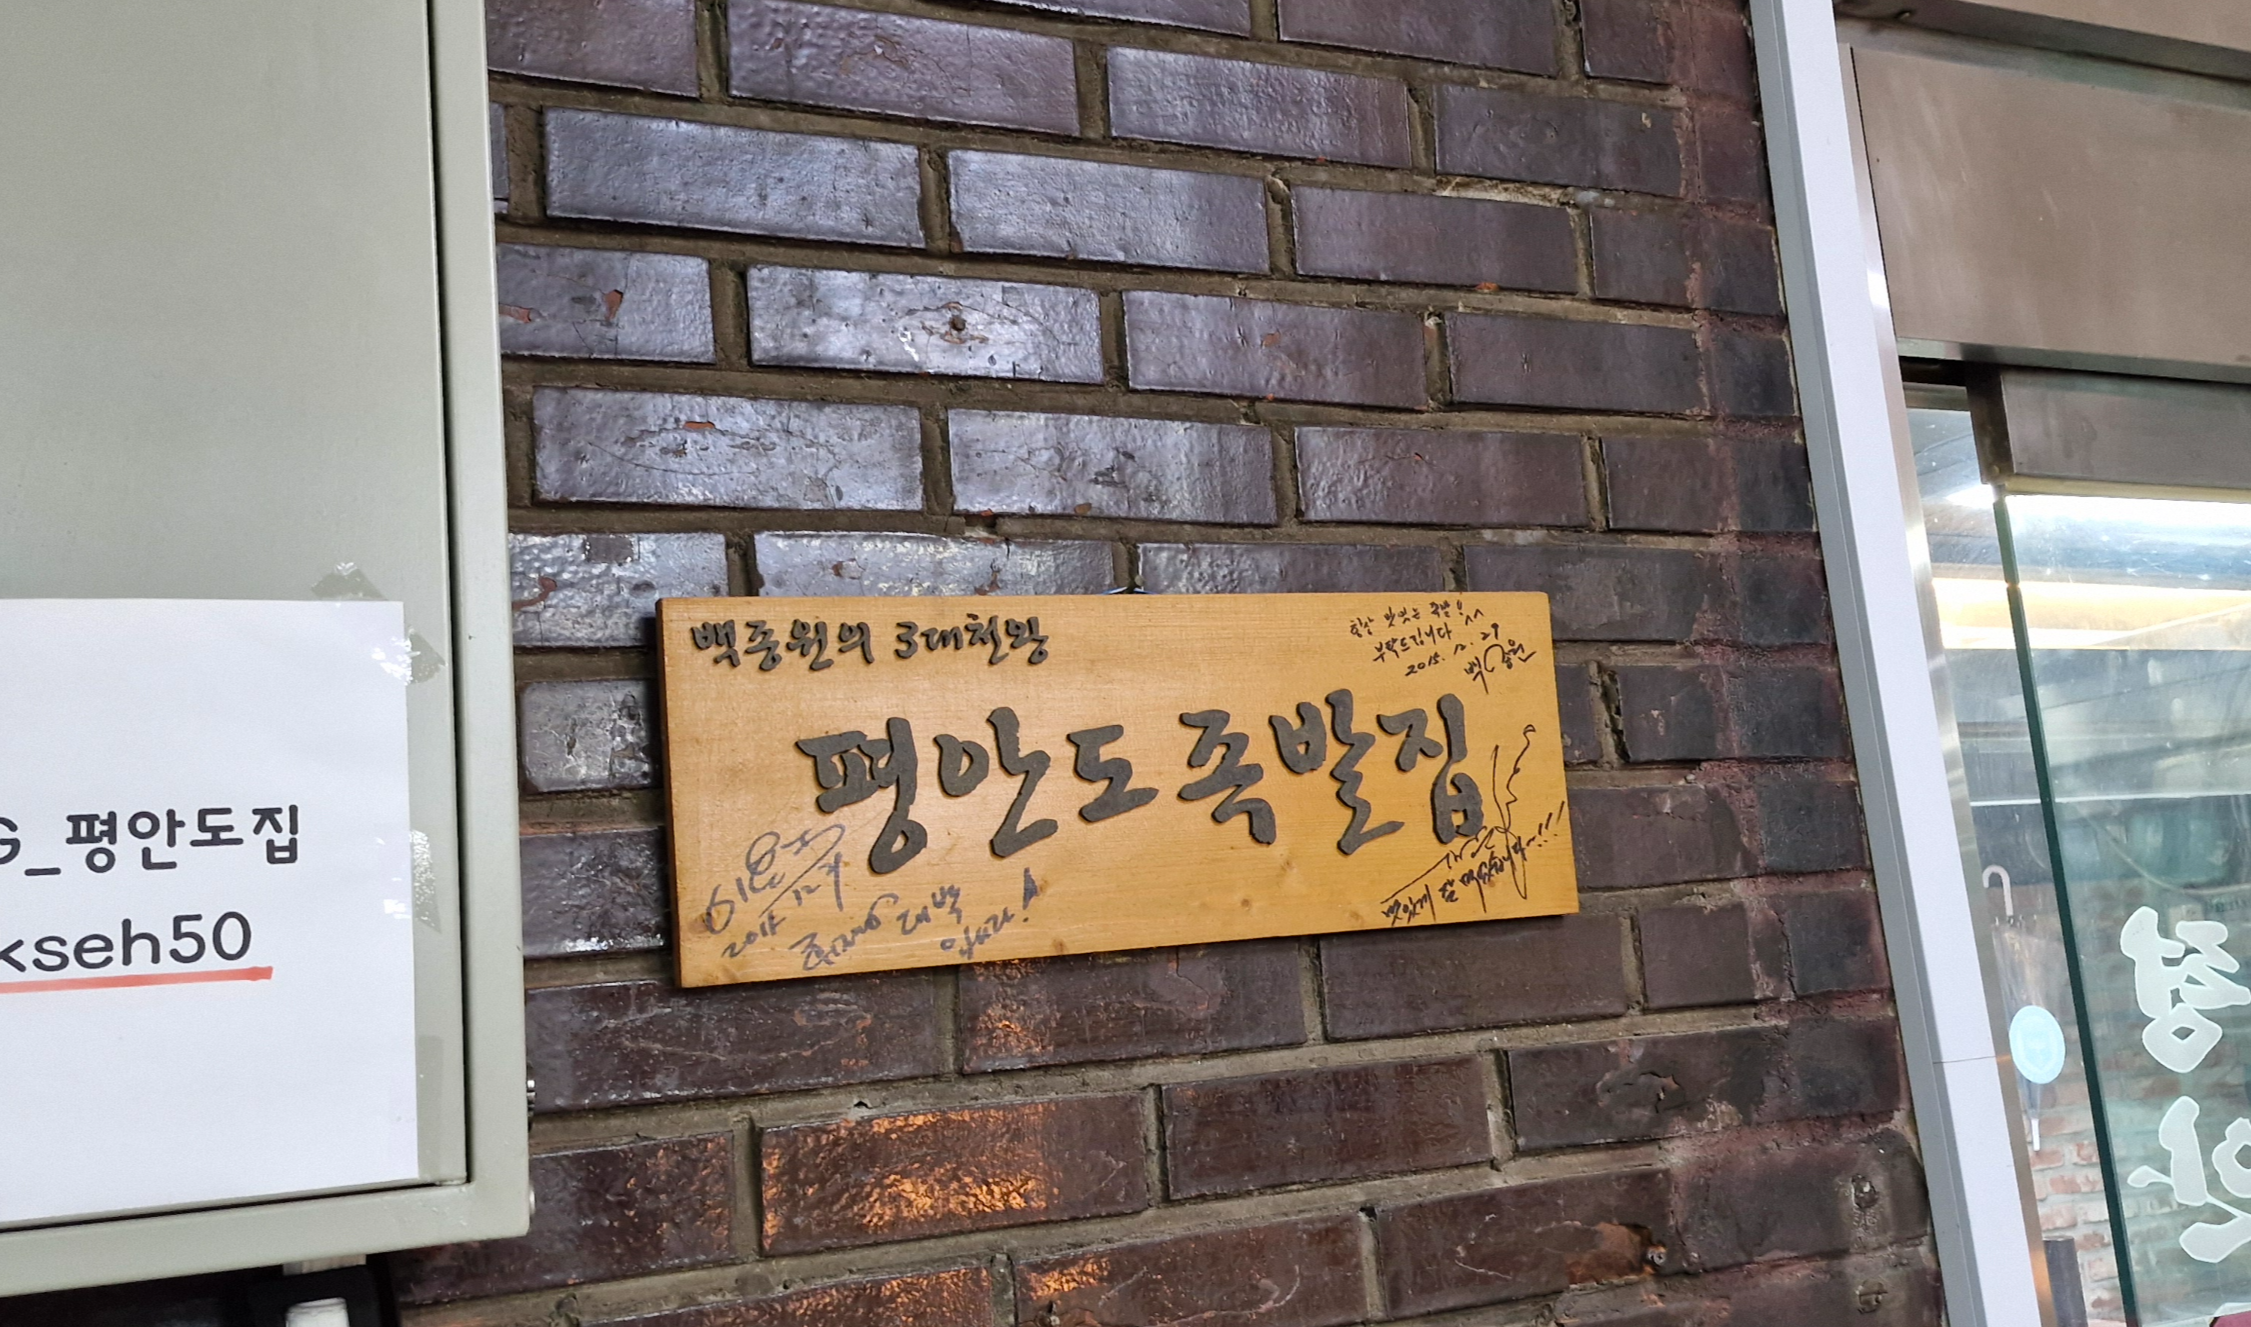 백종원의 3대천왕
항상 맛있는 족발!^^
부탁드립니다
2015. 12. 29
백종원
평안도족발집
2015 12월
대박
맛있게 잘 먹었습니다~!!!
G_평안도집
kseh50
평
안